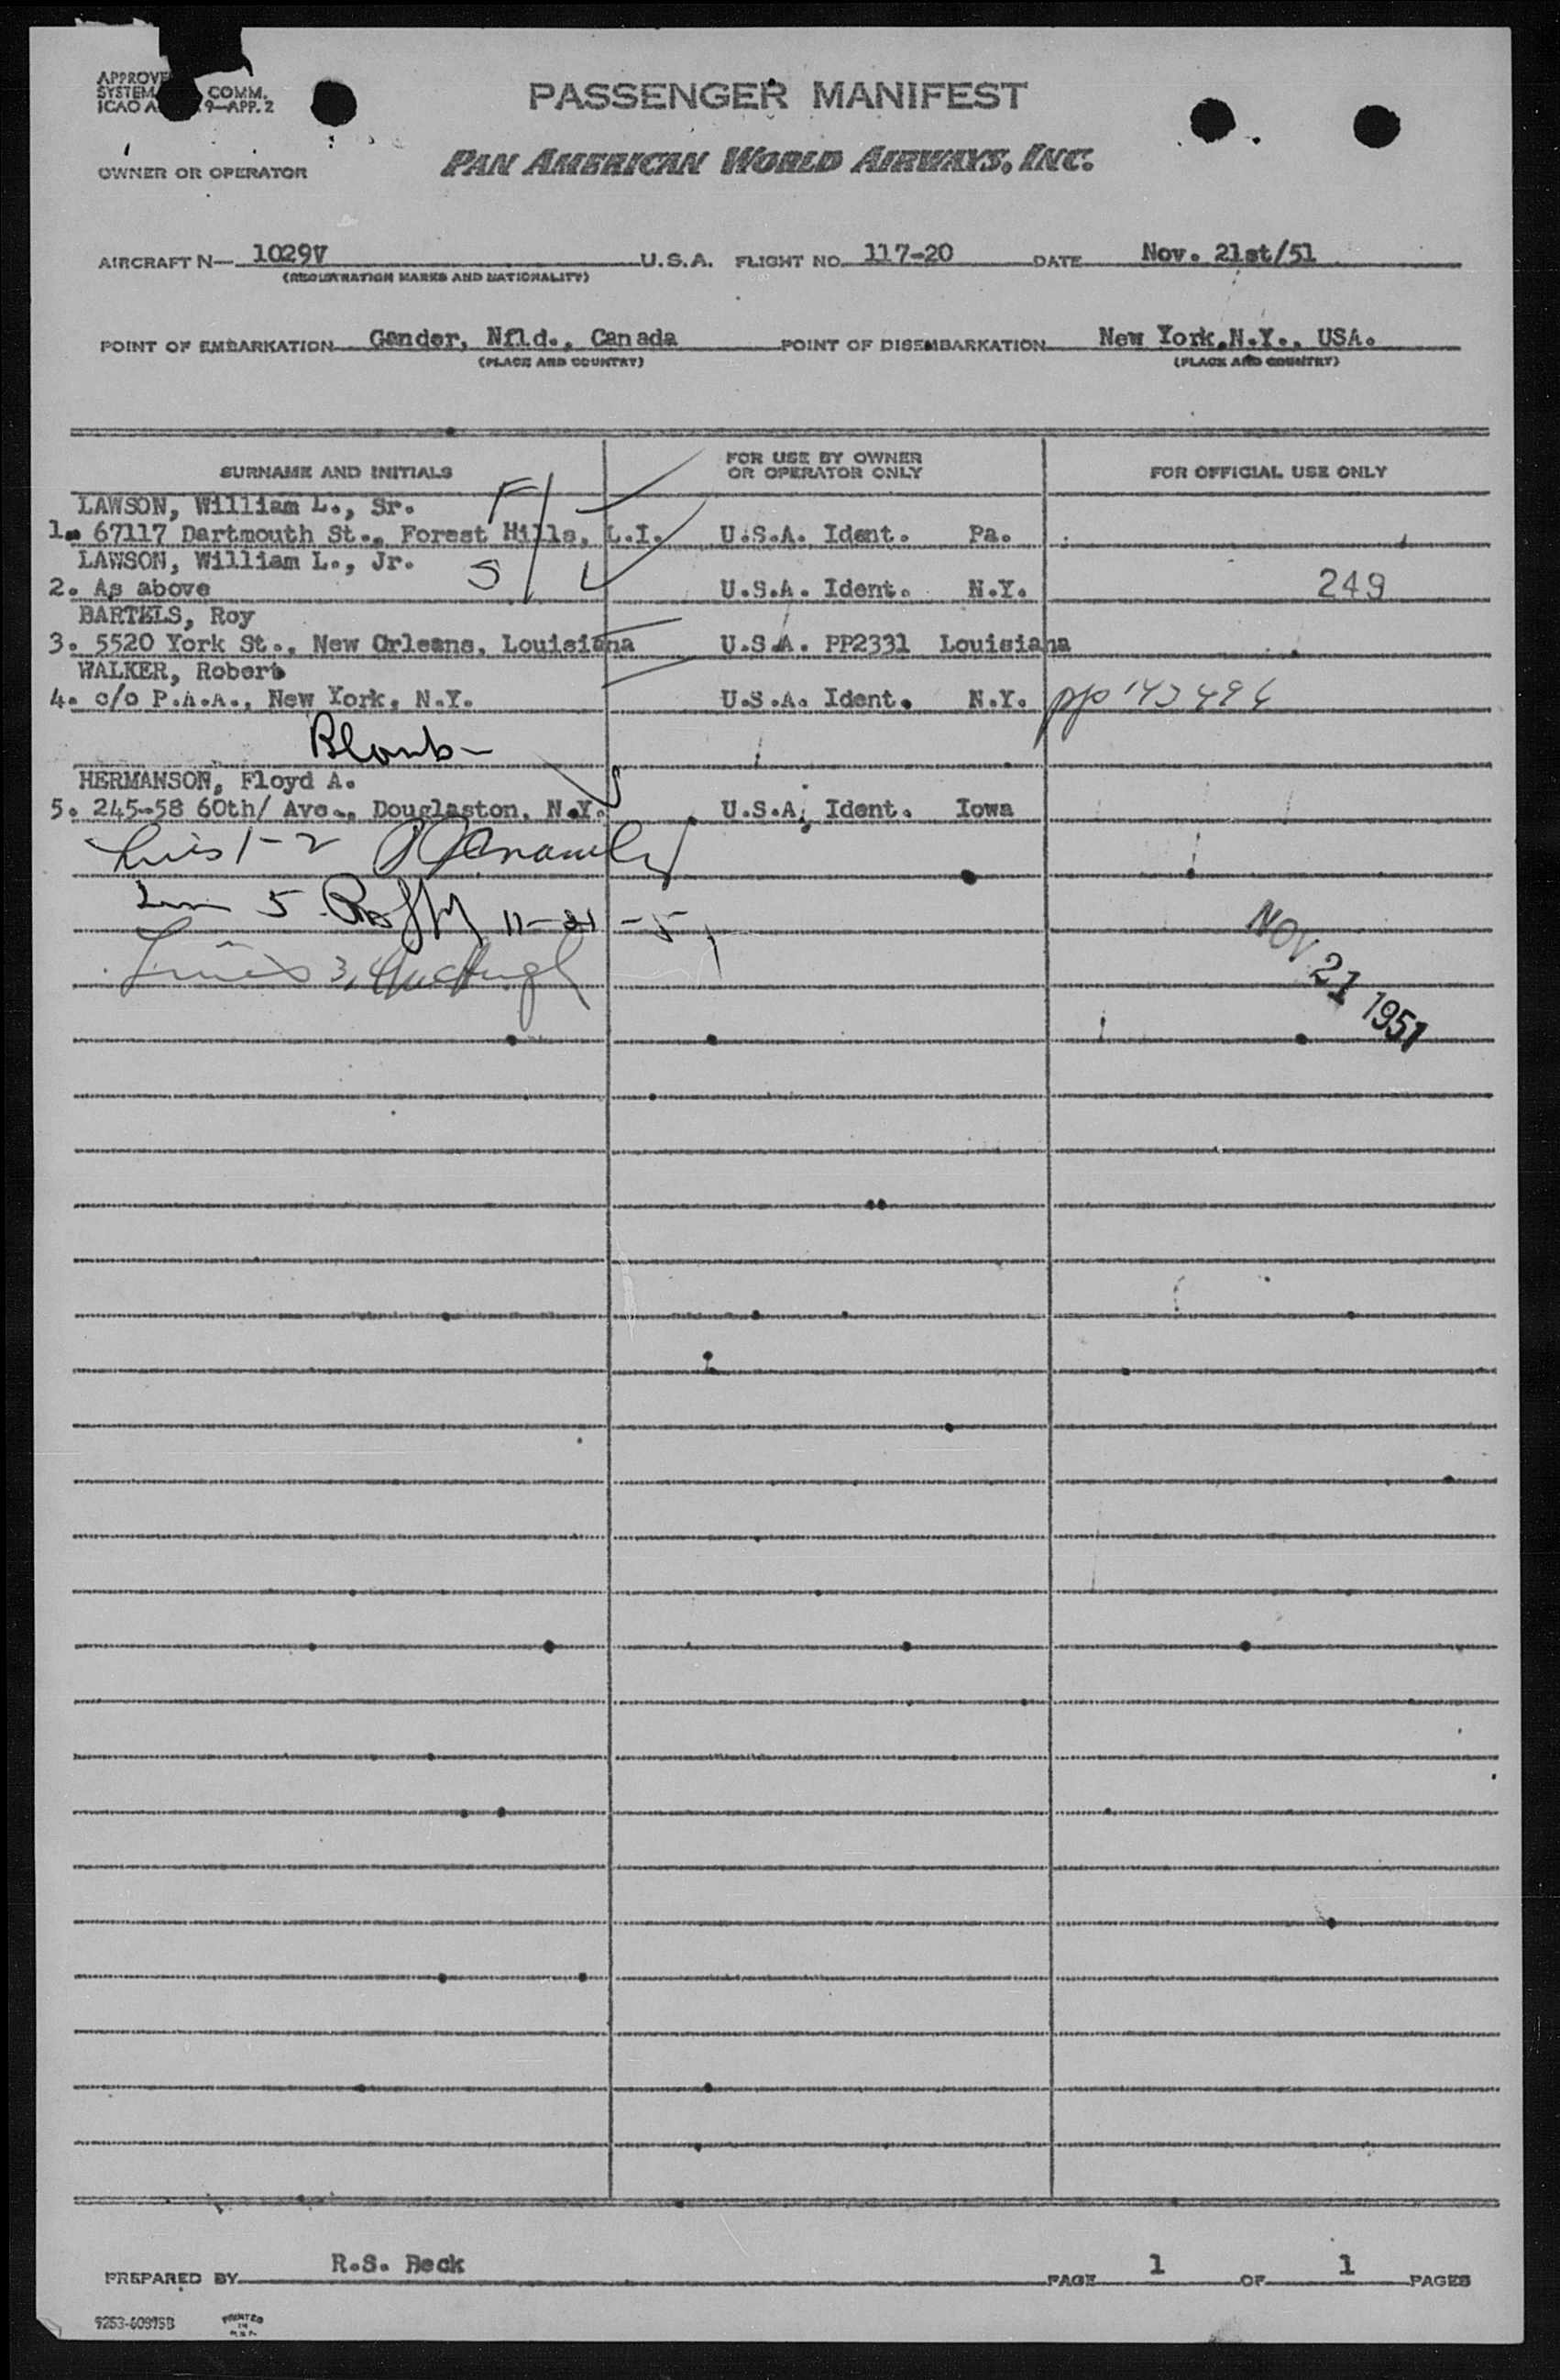 PASSENGER MANIFEST
COMM.
9-APP. 2
OWNER OR OPERATOR PAN AMERICAN WORLD AIRWAYS, INC.
AIRCRAFT N— 1029V U.S.A. FLIGHT NO. 117-20 DATE Nov. 21st/51
(REGISTRATION MARKS AND NATIONALITY)
POINT OF EMBARKATION Gander, Nfld., Canada POINT OF DISEMBARKATION New York,N.Y., USA.
(PLACE AND COUNTRY) (PLACE AND COUNTRY)
SURNAME AND INITIALS FOR USE BY OWNER OR OPERATOR ONLY FOR OFFICIAL USE ONLY
LAWSON, William L., Sr. F
1. 67117 Dartmouth St., Forest Hills, L.I. U.S.A. Ident. Pa.
LAWSON, William L., Jr. S
2. As above U.S.A. Ident. N.Y. 249
BARTELS, Roy
3. 5520 York St., New Orleans, Louisiana U.S.A. PP2331 Louisiana
WALKER, Robert
4. c/o P.A.A., New York, N.Y. U.S.A. Ident. N.Y. pp
Blank-
HERMANSON, Floyd A.
5. 245-58 60th/ Ave., Douglaston, N.Y. U.S.A. Ident. Iowa
1-2
5 11-21-51
Lines 3,4
NOV 21 1951
PREPARED BY R.S. Beck PAGE 1 OF 1 PAGES
PRINTED
IN